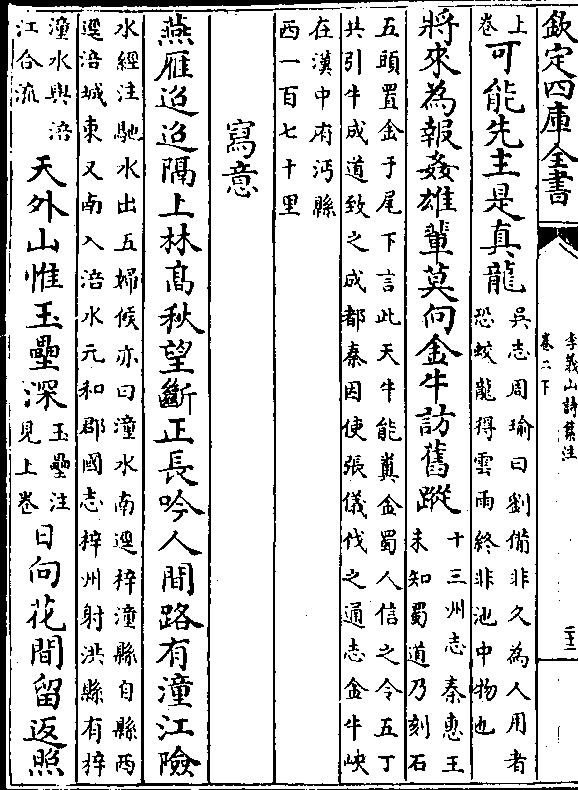 欽定四庫全書
李義山詩集注
卷二下
二十二
上卷
可能先主是真龍
吳志周瑜曰劉備非久為人用者
恐蛟龍得雲雨終非池中物也
將來為報姦雄輩莫向金牛訪舊蹤
十三州志秦惠王
未知蜀道乃刻石
五頭置金于尾下言此天牛能糞金蜀人信之令五丁
共引牛成道致之成都秦因使張儀伐之通志金牛峽
在漢中府沔縣
西一百七十里
寫意
燕雁迢迢隔上林高秋望斷正長吟人間路有潼江險
水經注馳水出五婦候亦曰潼水南逕梓潼縣自縣西
逕涪城東又南入涪水元和郡國志梓州射洪縣有梓
潼水與涪
江合流
天外山惟玉壘深
玉壘注
見上卷
日向花間留返照